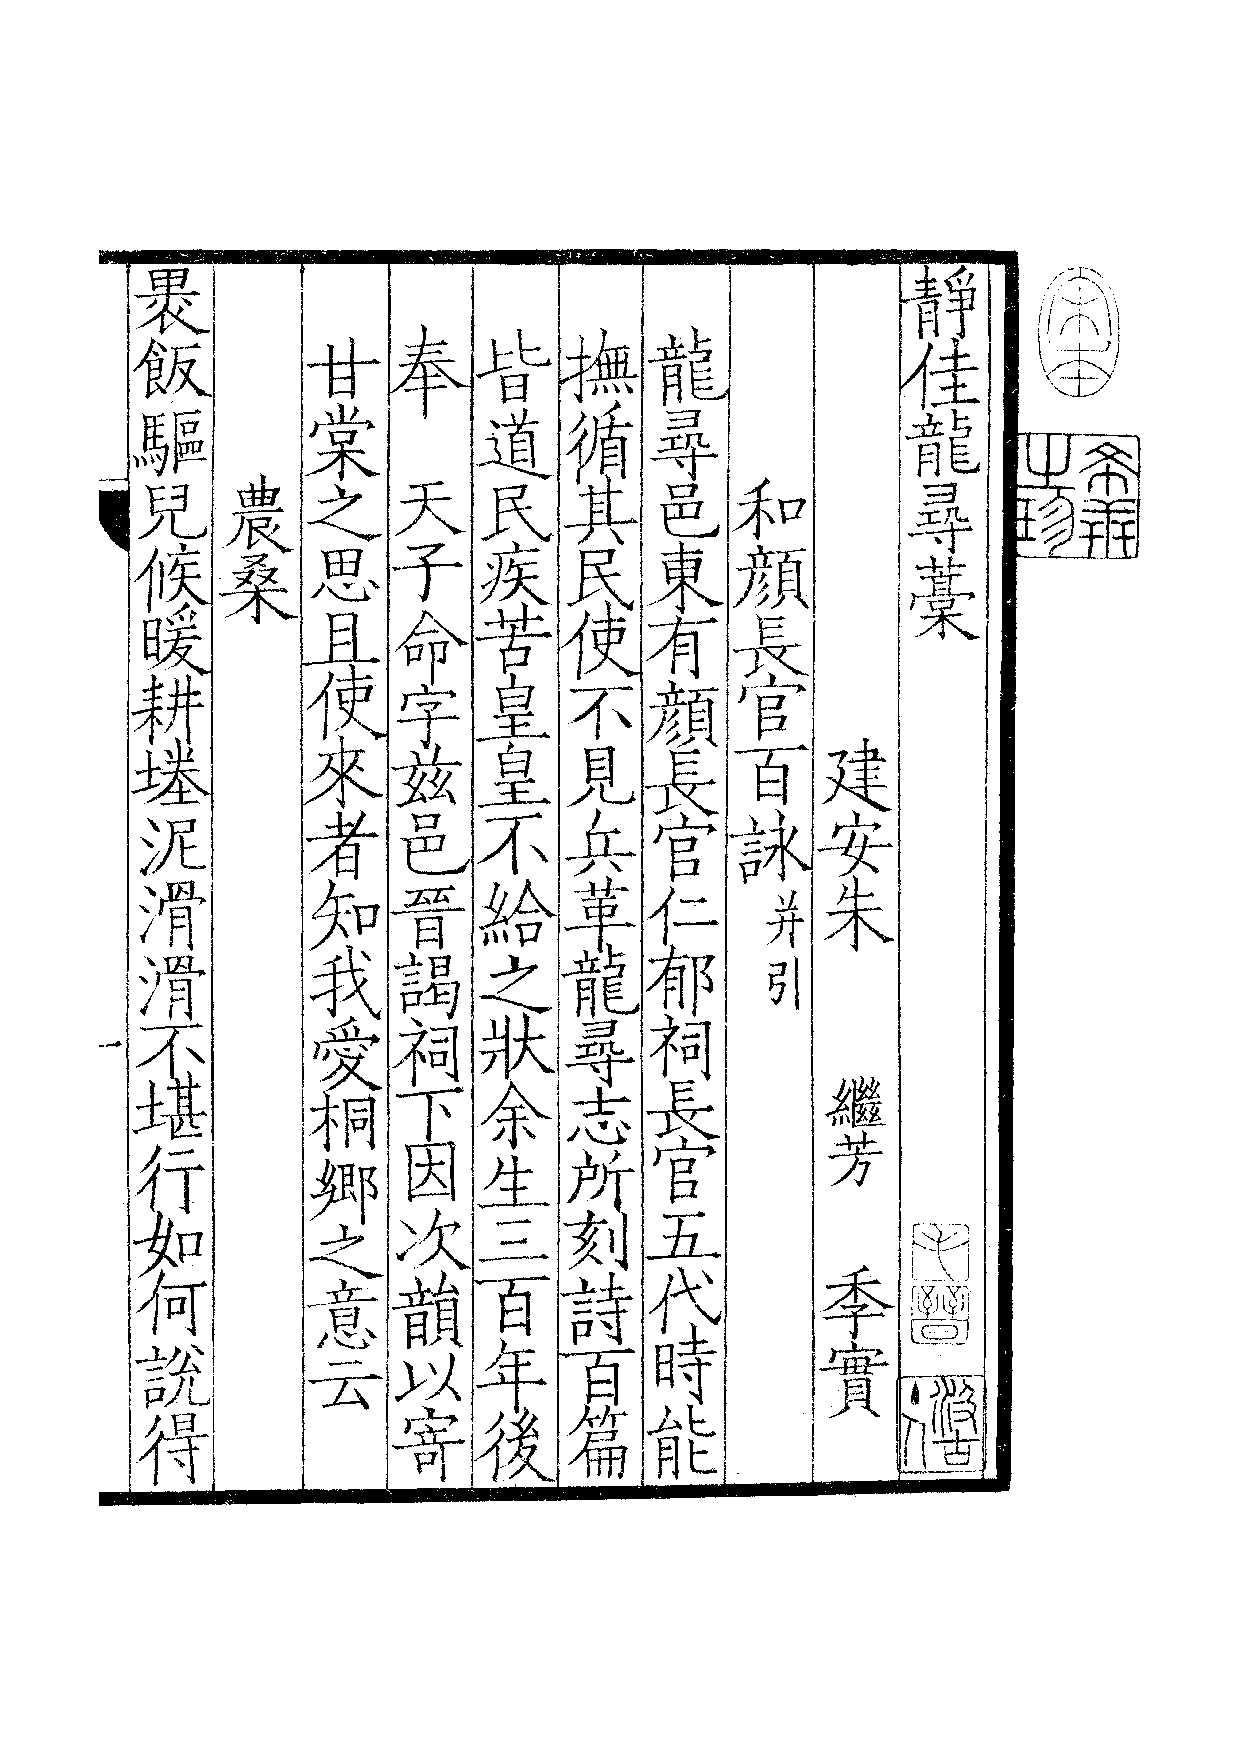 靜佳龍尋藁
建安朱 繼芳 季實
和顔長官百詠 并引
龍尋邑東有顔長官仁郁祠長官五代時能
撫循其民使不見兵革龍尋志所刻詩百篇
皆道民疾苦皇皇不給之狀余生三百年後
奉 天子命字兹邑晉謁祠下因次韻以寄
甘棠之思且使來者知我愛桐鄉之意云
農桑
褁飯驅兒候暖耕塂泥滑滑不堪行如何說得
一
宋本
希世之珍
毛晉